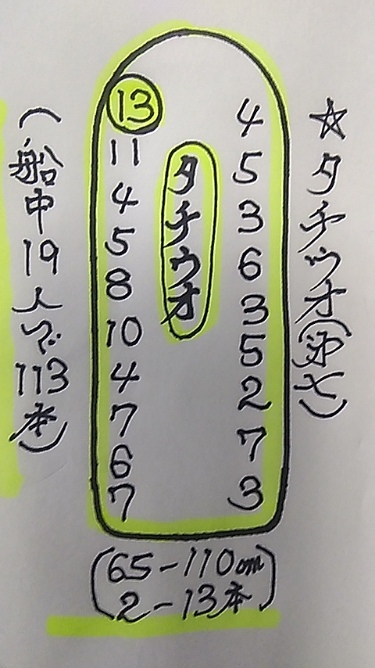 ☆タチウオ
4
5
3
6
3
5
2
7
3
タチウオ
13
11
4
5
8
10
4
7
6
7
(船中19人で113本)
(65-110cm
2-13本)